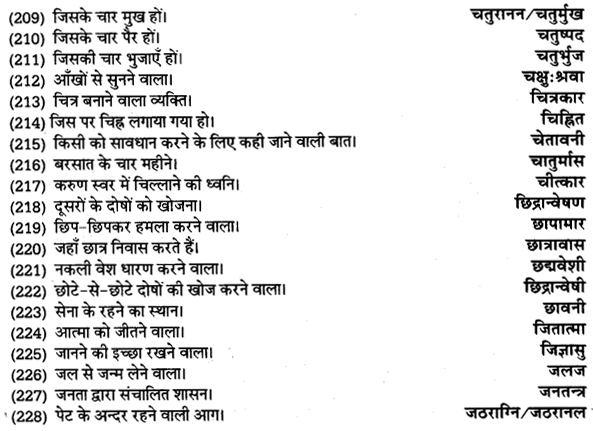 (209) जिसके चार मुख हों। चतुरानन/चतुर्मुख
(210) जिसके चार पैर हों। चतुष्पद
(211) जिसकी चार भुजाएँ हों। चतुर्भुज
(212) आँखों से सुनने वाला। चक्षुःश्रवा
(213) चित्र बनाने वाला व्यक्ति। चित्रकार
(214) जिस पर चिह्न लगाया गया हो। चिह्नित
(215) किसी को सावधान करने के लिए कही जाने वाली बात। चेतावनी
(216) बरसात के चार महीने। चातुर्मास
(217) करुण स्वर में चिल्लाने की ध्वनि। चीत्कार
(218) दूसरों के दोषों को खोजना। छिद्रान्वेषण
(219) छिप-छिपकर हमला करने वाला। छापामार
(220) जहाँ छात्र निवास करते हैं। छात्रावास
(221) नकली वेश धारण करने वाला। छद्मवेशी
(222) छोटे-से-छोटे दोषों की खोज करने वाला। छिद्रान्वेषी
(223) सेना के रहने का स्थान। छावनी
(224) आत्मा को जीतने वाला। जितात्मा
(225) जानने की इच्छा रखने वाला। जिज्ञासु
(226) जल से जन्म लेने वाला। जलज
(227) जनता द्वारा संचालित शासन। जनतन्त्र
(228) पेट के अन्दर रहने वाली आग। जठराग्नि/जठरानल